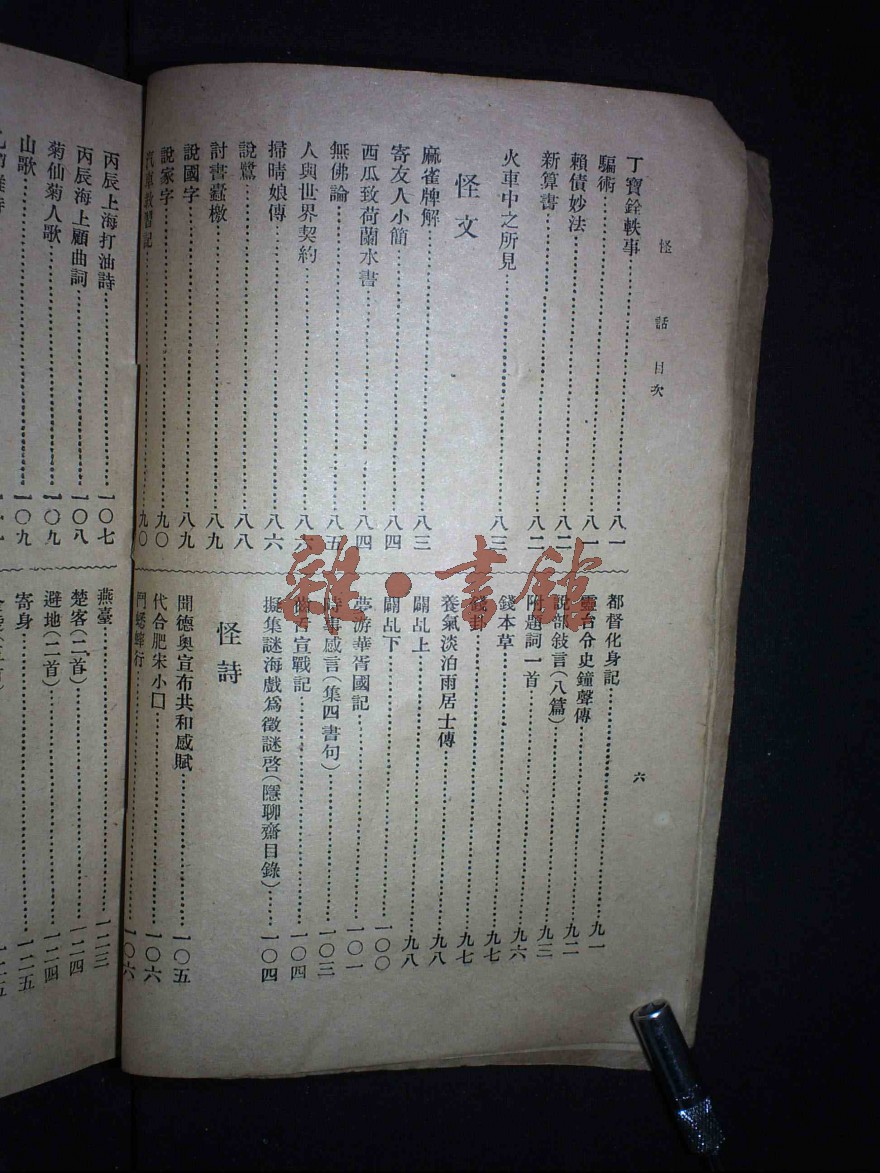 怪話目次
六
丁寶銓軼事……八一
騙術……八一
賴債妙法……八二
新算書……八二
火車中之所見……八三
怪文
麻雀牌解……八三
寄友人小簡……八四
西瓜致荷蘭水書……八四
無佛論……八五
人與世界契約……八六
掃晴娘傳……八六
說鷺……八八
討書蠹檄……八九
說國字……八九
說家字……九〇
汽車教習記……九〇
都督化身記……九一
靈台令史鐘聲傳……九二
說部敍言(八篇)……九二
附題詞一首……九六
錢本草……九七
錢卦……九七
養氣淡泊雨居士傳……九八
闢乩上……九八
闢乩下……一〇〇
夢游華胥國記……一〇一
時事感言(集四書句)……一〇三
宣戰記……一〇四
擬集謎海戲爲徵謎啓(隱聊齋目錄)……一〇四
怪詩
聞德奥宣布共和感賦……一〇五
代合肥宋小口……一〇六
鬥蟋蟀行……一〇六
丙辰上海打油詩……一〇七
丙辰海上顧曲詞……一〇八
菊仙菊人歌……一〇九
山歌……一〇九
燕臺……一二三
楚客(二首)……一二四
避地(二首)……一二四
寄身……一二五
雜·書館